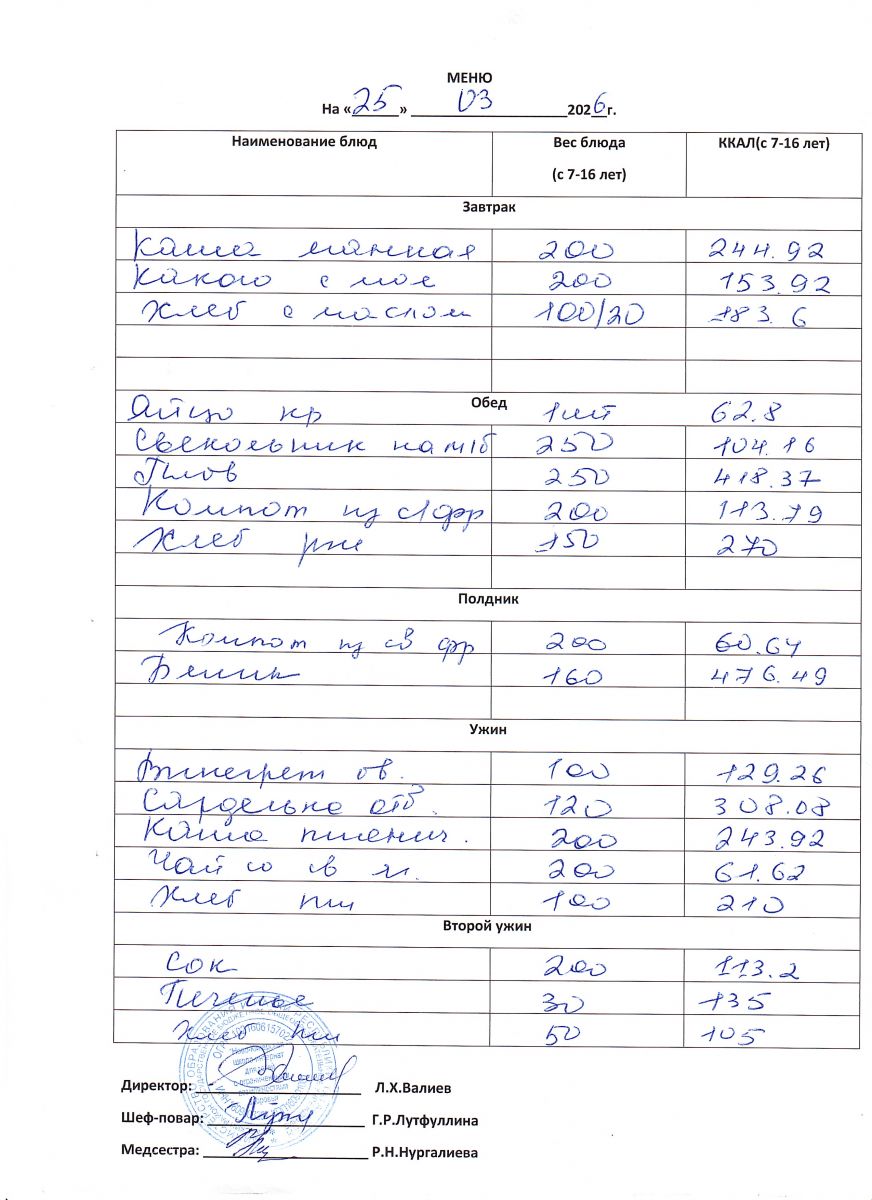 МЕНЮ
На «25» 03 2026 г.
Наименование блюд Вес блюда (с 7-16 лет) ККАЛ(с 7-16 лет)
Завтрак
Каша манная 200 244.92
Какого с мол 200 153.92
Хлеб с маслом 100/20 183.6
Обед
Яйцо кр 1шт 62.8
Свекольник на м/б 250 104.16
Плов 250 418.37
Компот из с/фр 200 113.79
Хлеб рж 150 270
Полдник
Компот из св фр 200 60.64
Бэлиш 160 476.49
Ужин
Винегрет ов. 100 129.26
Сарделька отв. 120 308.08
Каша пшенич. 200 243.92
Чай со св м. 200 61.62
Хлеб пш 100 210
Второй ужин
Сок 200 113.2
Печенье 30 135
Хлеб пш 50 105
Директор: Л.Х.Валиев
Шеф-повар: Г.Р.Лутфуллина
Медсестра: Р.Н.Нургалиева